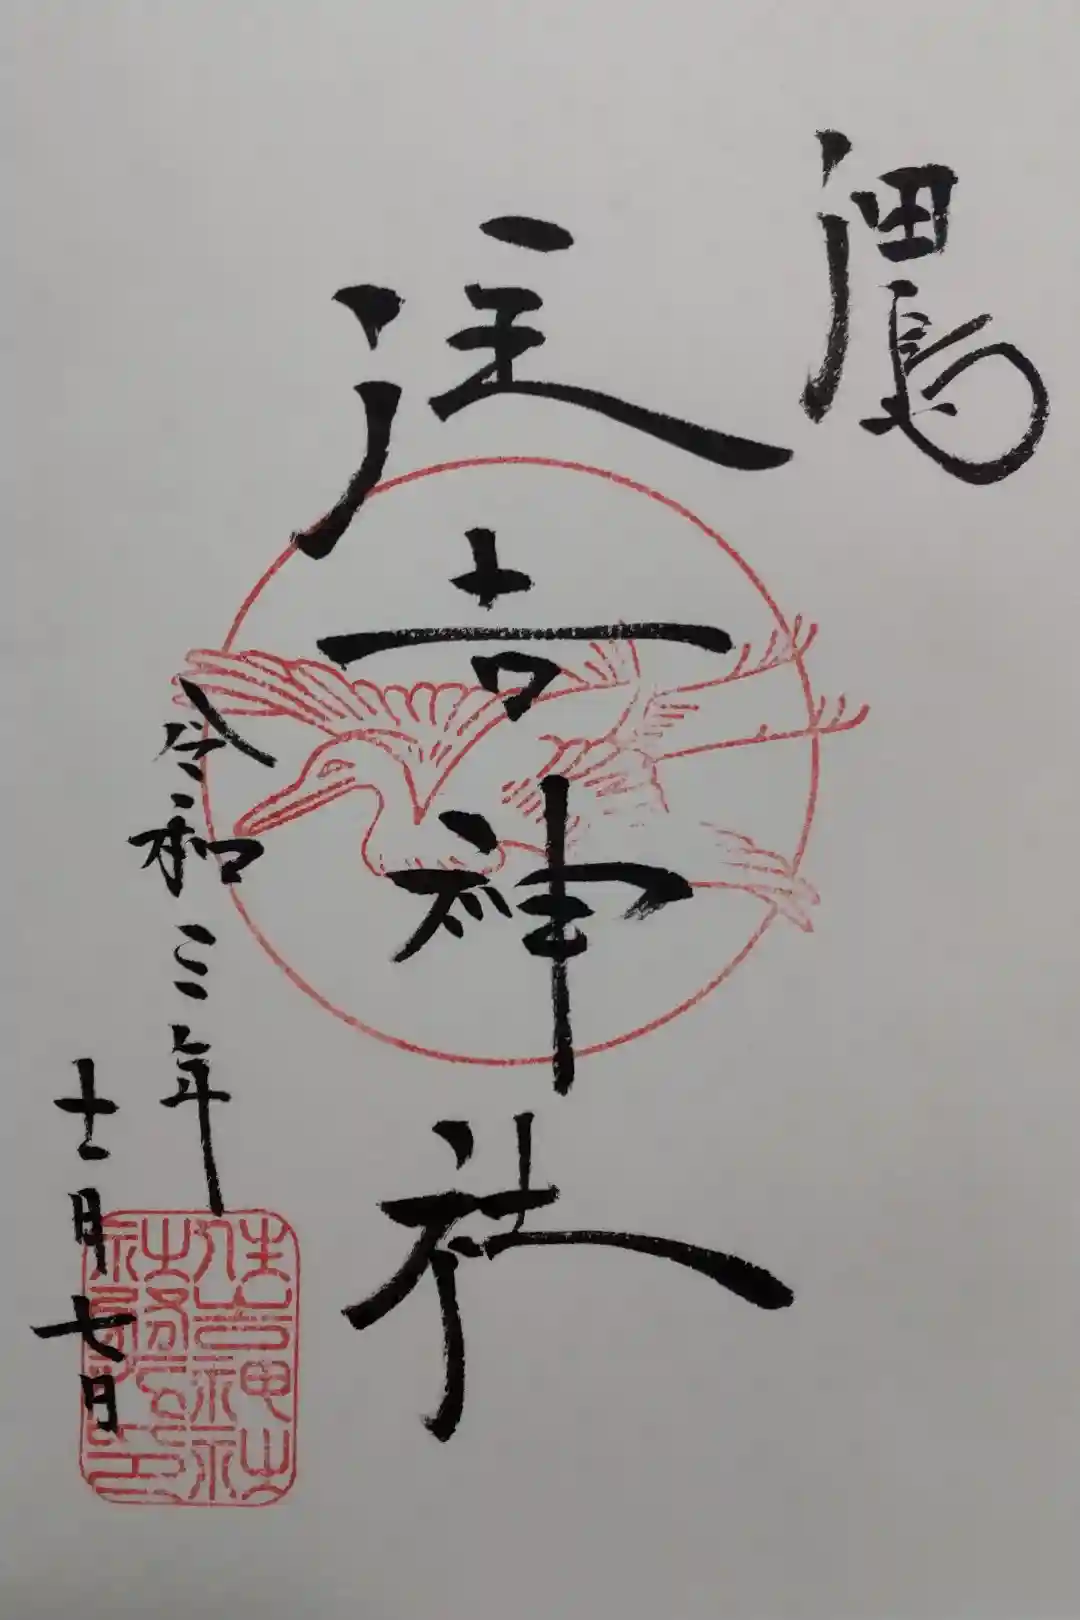 住吉神社
令和三年
十二月七日
住吉神社
社務所之印